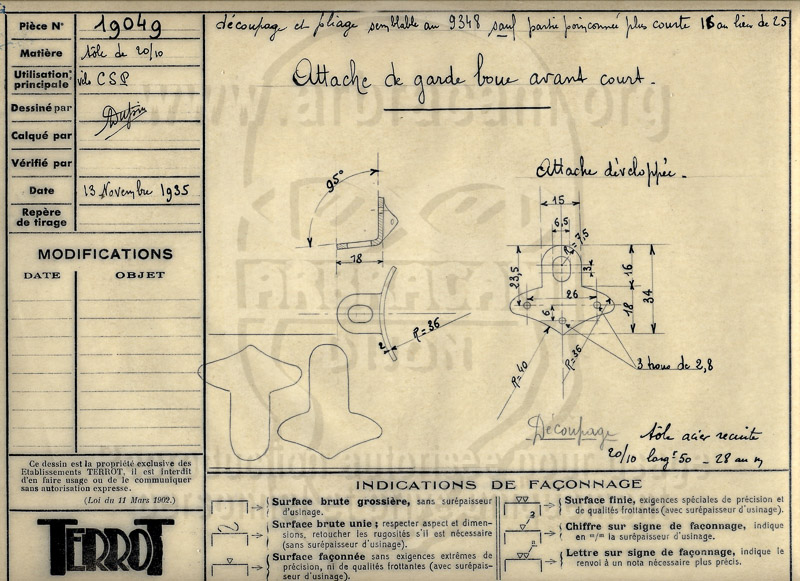 Pièce N° 19049
Matière tôle de 20/10
Utilisation principale vélo CSP
Dessiné par Dupin
Calqué par
Vérifié par
Date 13 Novembre 1935
Repère de tirage
MODIFICATIONS
DATE OBJET
découpage et pliage semblable au 9348 sauf partie poinçonnée plus courte 16 au lieu de 25
Attache de garde boue avant court.
95°
18
R=36
2
Attache développée.
15
6,5
R=7,5
23,5
3
16
26
18
34
6
R=40
R=36
3 trous de 2,8
Découpage
tôle acier recuite
20/10 larg: 50 - 28 au m
Ce dessin est la propriété exclusive des
Etablissements TERROT, il est interdit
d'en faire usage ou de le communiquer
sans autorisation expresse.
(Loi du 11 Mars 1902.)
TERROT
INDICATIONS DE FAÇONNAGE
Surface brute grossière, sans surépaisseur
d'usinage.
Surface brute unie; respecter aspect et dimen-
sions, retoucher les rugosités s'il est nécessaire
(sans surépaisseur d'usinage).
Surface façonnée sans exigences extrêmes de
précision, ni de qualités frottantes (avec surépais-
seur d'usinage).
Surface finie, exigences spéciales de précision et
de qualités frottantes (avec surépaisseur d'usinage).
Chiffre sur signe de façonnage, indique
en m/m la surépaisseur d'usinage.
Lettre sur signe de façonnage, indique le
renvoi à un nota nécessaire plus précis.
www.arpracam.org